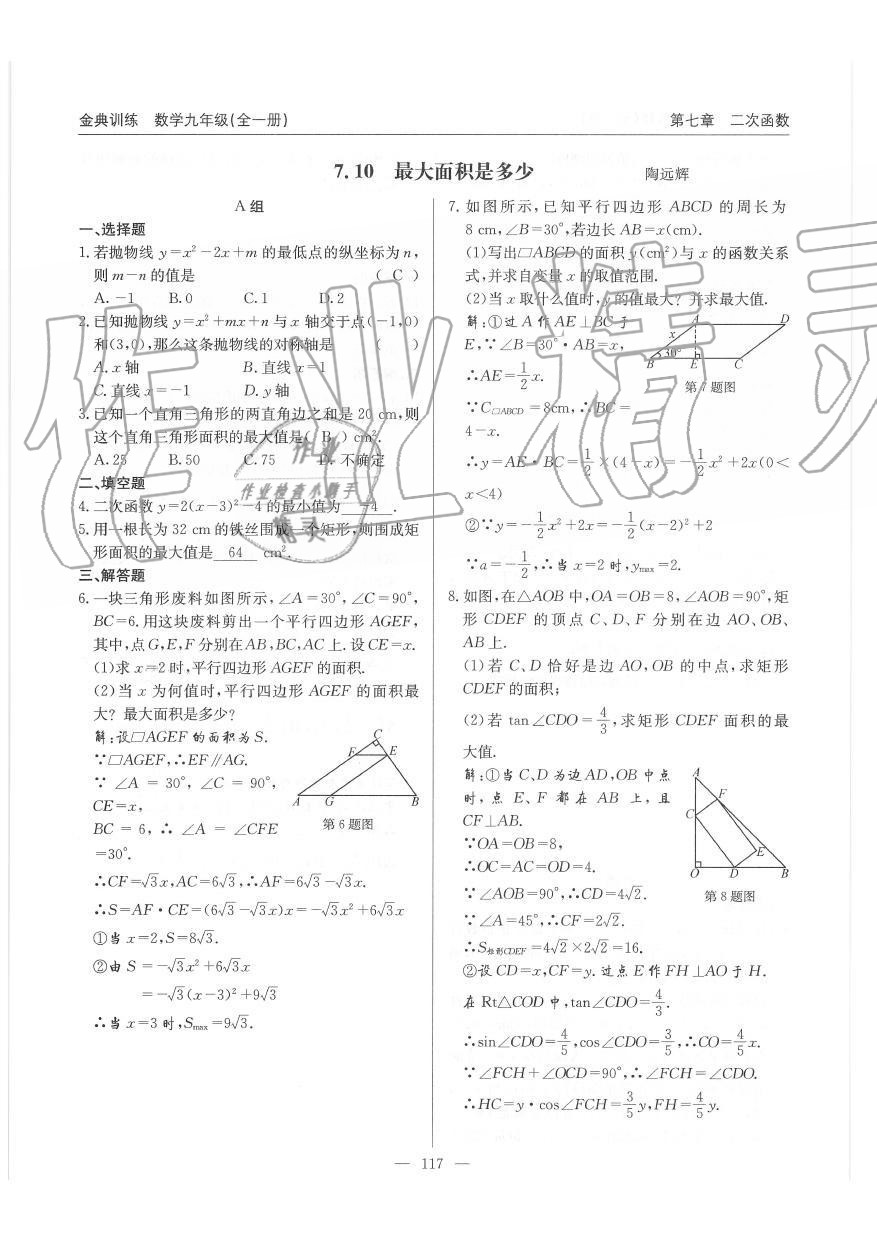 金典训练 数学九年级(全一册)
第七章 二次函数
7.10 最大面积是多少 陶远辉
A组
一、选择题
1.若抛物线 y=x²-2x+m 的最低点的纵坐标为 n,
则 m-n 的值是 ( C )
A.-1 B.0 C.1 D.2
2.已知抛物线 y=x²+mx+n 与 x 轴交于点(-1,0)
和(3,0),那么这条抛物线的对称轴是 ( )
A.x 轴 B.直线 x=1
C.直线 x=-1 D.y 轴
3.已知一个直角三角形的两直角边之和是 20 cm,则
这个直角三角形面积的最大值是( B ) cm².
A.25 B.50 C.75 D.不确定
二、填空题
4.二次函数 y=2(x-3)²-4 的最小值为 -4 .
5.用一根长为 32 cm 的铁丝围成一个矩形,则围成矩
形面积的最大值是 64 cm².
三、解答题
6.一块三角形废料如图所示,∠A=30°,∠C=90°,
BC=6.用这块废料剪出一个平行四边形 AGEF,
其中,点 G,E,F 分别在AB,BC,AC 上.设 CE=x.
(1)求 x=2 时,平行四边形 AGEF 的面积.
(2)当 x 为何值时,平行四边形 AGEF 的面积最
大? 最大面积是多少?
解:设▱AGEF 的面积为 S.
∵▱AGEF,∴EF∥AG.
∵ ∠A = 30°, ∠C = 90°,
CE=x,
BC = 6, ∴ ∠A = ∠CFE
=30°.
C
F E
A G B
第 6 题图
∴CF=√3x,AC=6√3,∴AF=6√3-√3x.
∴S=AF·CE=(6√3-√3x)x=-√3x²+6√3x
①当 x=2,S=8√3.
②由 S =-√3x²+6√3x
=-√3(x-3)²+9√3
∴当 x=3 时,Smax=9√3.
7.如图所示,已知平行四边形 ABCD 的周长为
8 cm,∠B=30°,若边长 AB=x(cm).
(1)写出▱ABCD的面积 y(cm²)与 x 的函数关系
式,并求自变量 x 的取值范围.
(2)当 x 取什么值时,y 的值最大? 并求最大值.
解:①过 A 作 AE⊥BC 于
E,∵∠B=30°·AB=x,
∴AE=1/2x.
∵C▱ABCD=8cm,∴BC=
4-x.
A D
x
30°
B E C
第 7 题图
∴y=AE·BC=1/2×(4-x)=-1/2x²+2x(0<
x<4)
②∵y=-1/2x²+2x=-1/2(x-2)²+2
∵a=-1/2,∴当 x=2 时,ymax=2.
8.如图,在△AOB 中,OA=OB=8,∠AOB=90°,矩
形 CDEF 的顶点 C、D、F 分别在边 AO、OB、
AB上.
(1)若 C、D 恰好是边 AO,OB 的中点,求矩形
CDEF 的面积;
(2)若 tan∠CDO=4/3,求矩形 CDEF 面积的最
大值.
解:①当 C、D 为边AD,OB 中点
时,点 E、F 都在 AB 上,且
CF⊥AB.
∵OA=OB=8,
∴OC=AC=OD=4.
A
F
C
E
O D B
第 8 题图
∵∠AOB=90°,∴CD=4√2.
∵∠A=45°,∴CF=2√2.
∴S矩形CDEF=4√2×2√2=16.
②设 CD=x,CF=y.过点 E 作 FH⊥AO 于 H.
在 Rt△COD 中,tan∠CDO=4/3.
∴sin∠CDO=4/5,cos∠CDO=3/5,∴CO=4/5x.
∵∠FCH+∠OCD=90°,∴∠FCH=∠CDO.
∴HC=y·cos∠FCH=3/5y,FH=4/5y.
— 117 —
作业精灵
作业
作业检查小助手
精灵